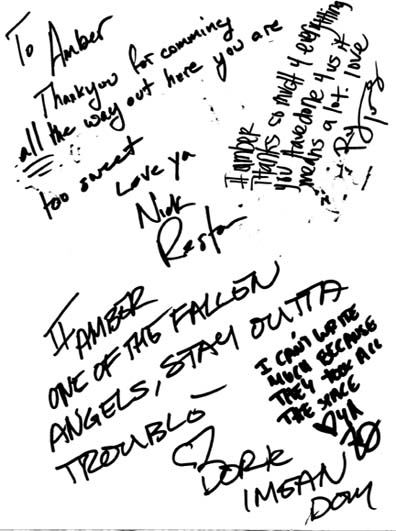 To Amber
Thankyou for comming
all the way out here you are
too sweet
Love ya
Nick
II amber
Thanks so much 4 everything
you have done 4 us it
means a lot. love
II AMBER
ONE OF THE FALLEN
ANGELS, STAY OUTTA
TROUBLO
DORK
I MEAN
DOM
I CAN'T WRITE
MUCH BECAUSE
THEY TOOK ALL
THE SPACE